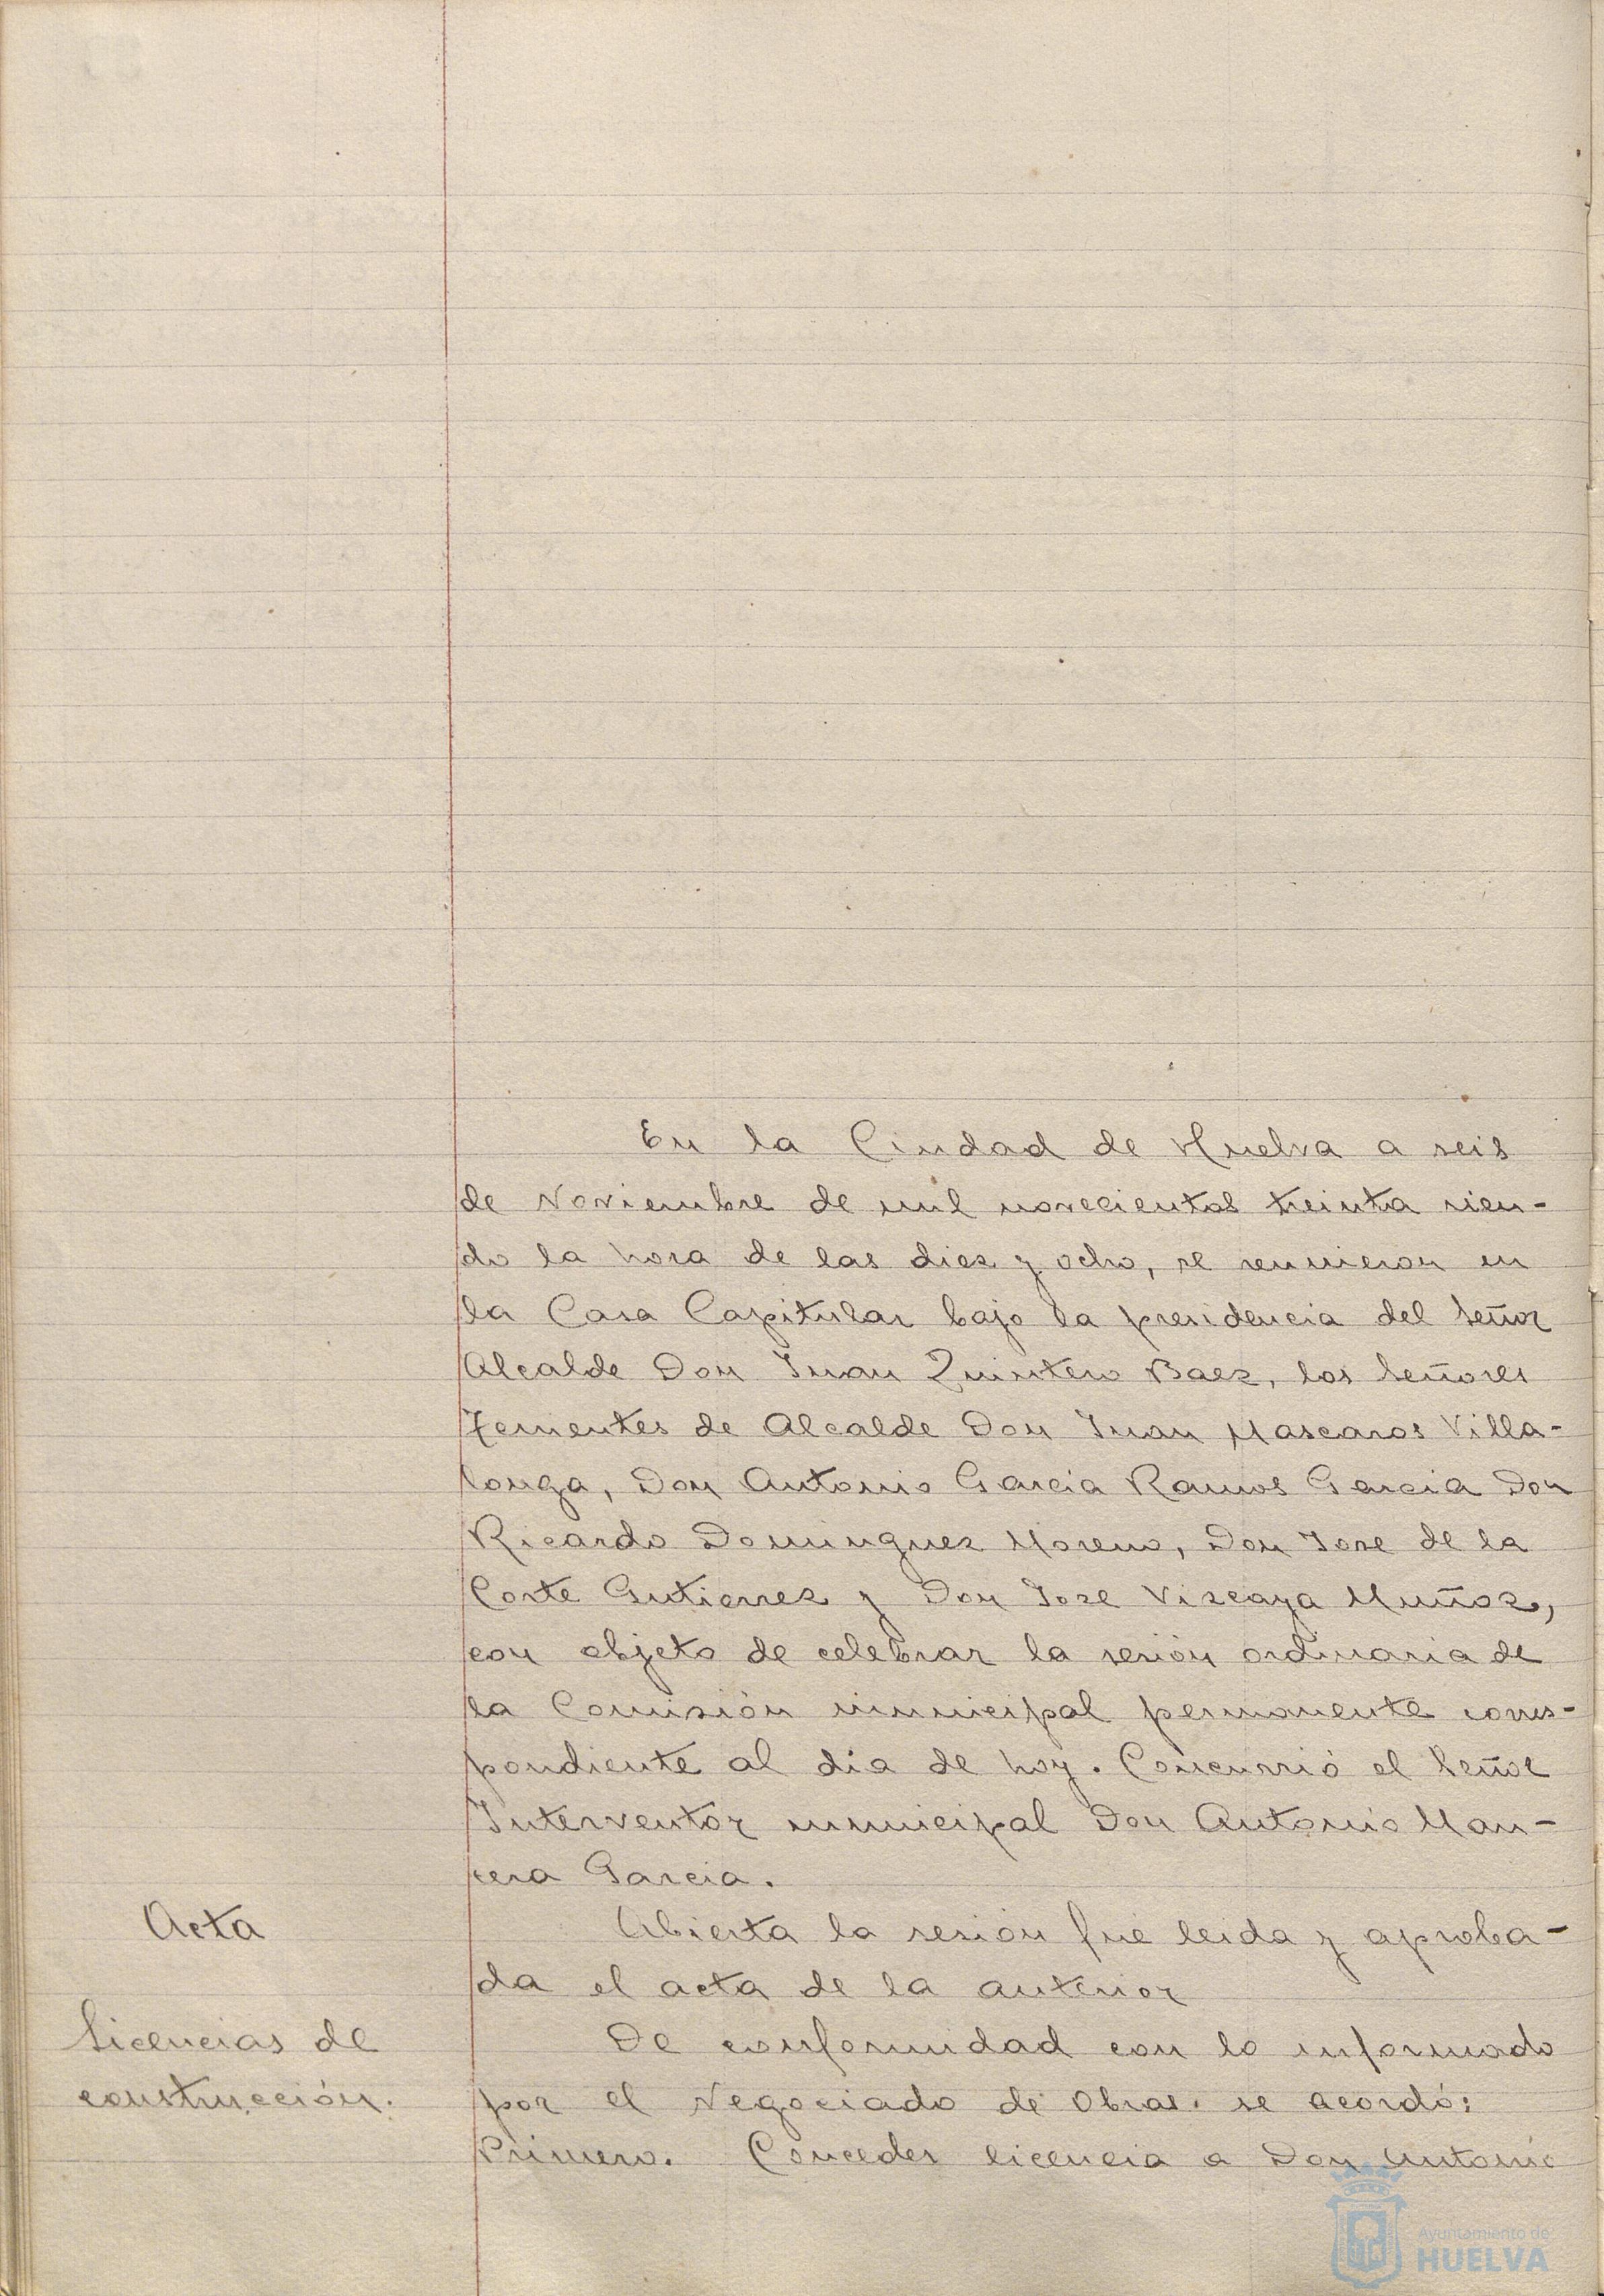 En la Ciudad de Huelva a seis
de Noviembre de mil novecientos treinta sien-
do la hora de las diez y ocho, se reunieron en
la Casa Capitular bajo la presidencia del Señor
Alcalde Don Juan Quintero Baez, los Señores
Tenientes de Alcalde Don Juan Mascaros Villa-
longa, Don Antonio Garcia Ramos Garcia Don
Ricardo Dominguez Moreno, Don Jose de la
Corte Gutierrez y Don Jose Viscaya Muñoz,
con objeto de celebrar la sesión ordinaria de
la Comisión municipal permanente corres-
pondiente al dia de hoy. Concurrió el Señor
Interventor municipal Don Antonio Man-
cera Garcia.
Acta
Abierta la sesión fué leida y aproba-
da el acta de la anterior
Licencias de
construcción.
De conformidad con lo informado
por el Negociado de Obras. se acordó:
Primero. Conceder licencia a Don Antonio
Ayuntamiento de
HUELVA